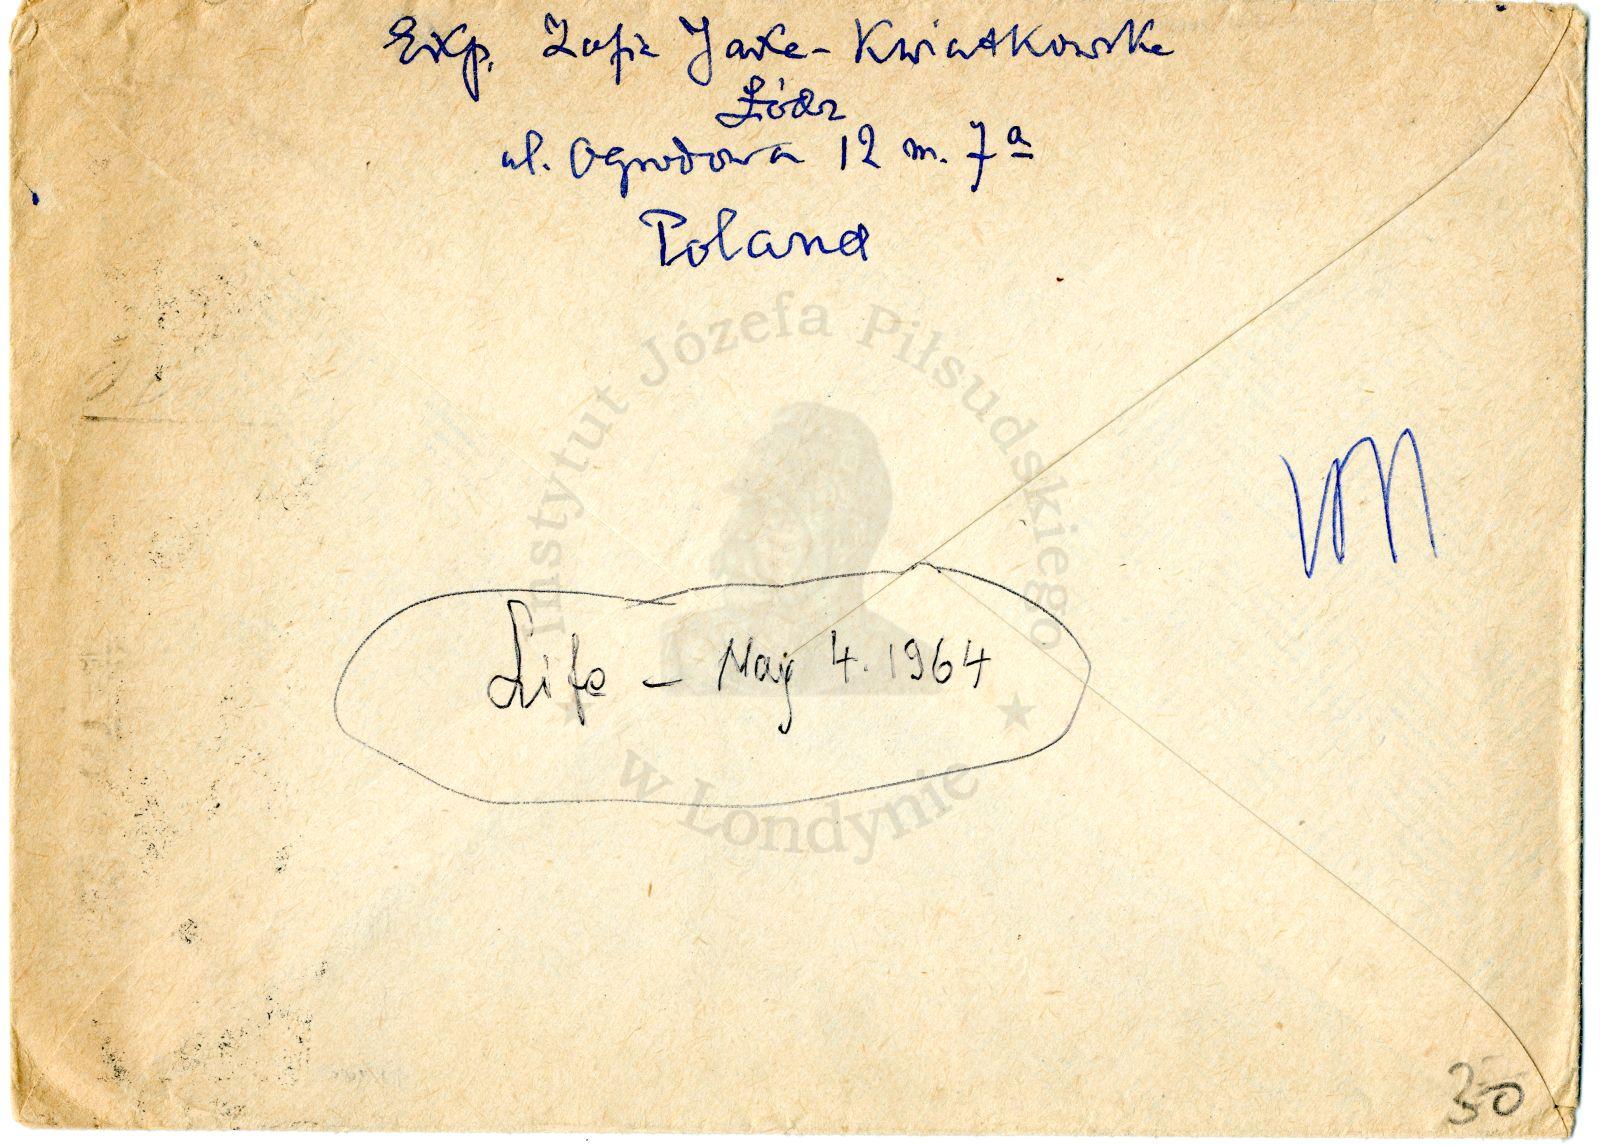 Exp. Zofia Jaxe-Kwiatkowska
Łódź
ul. Ogrodowa 12 m. 7a
Poland
Instytut Józefa Piłsudskiego
Life - May 4. 1964
w Londynie
30